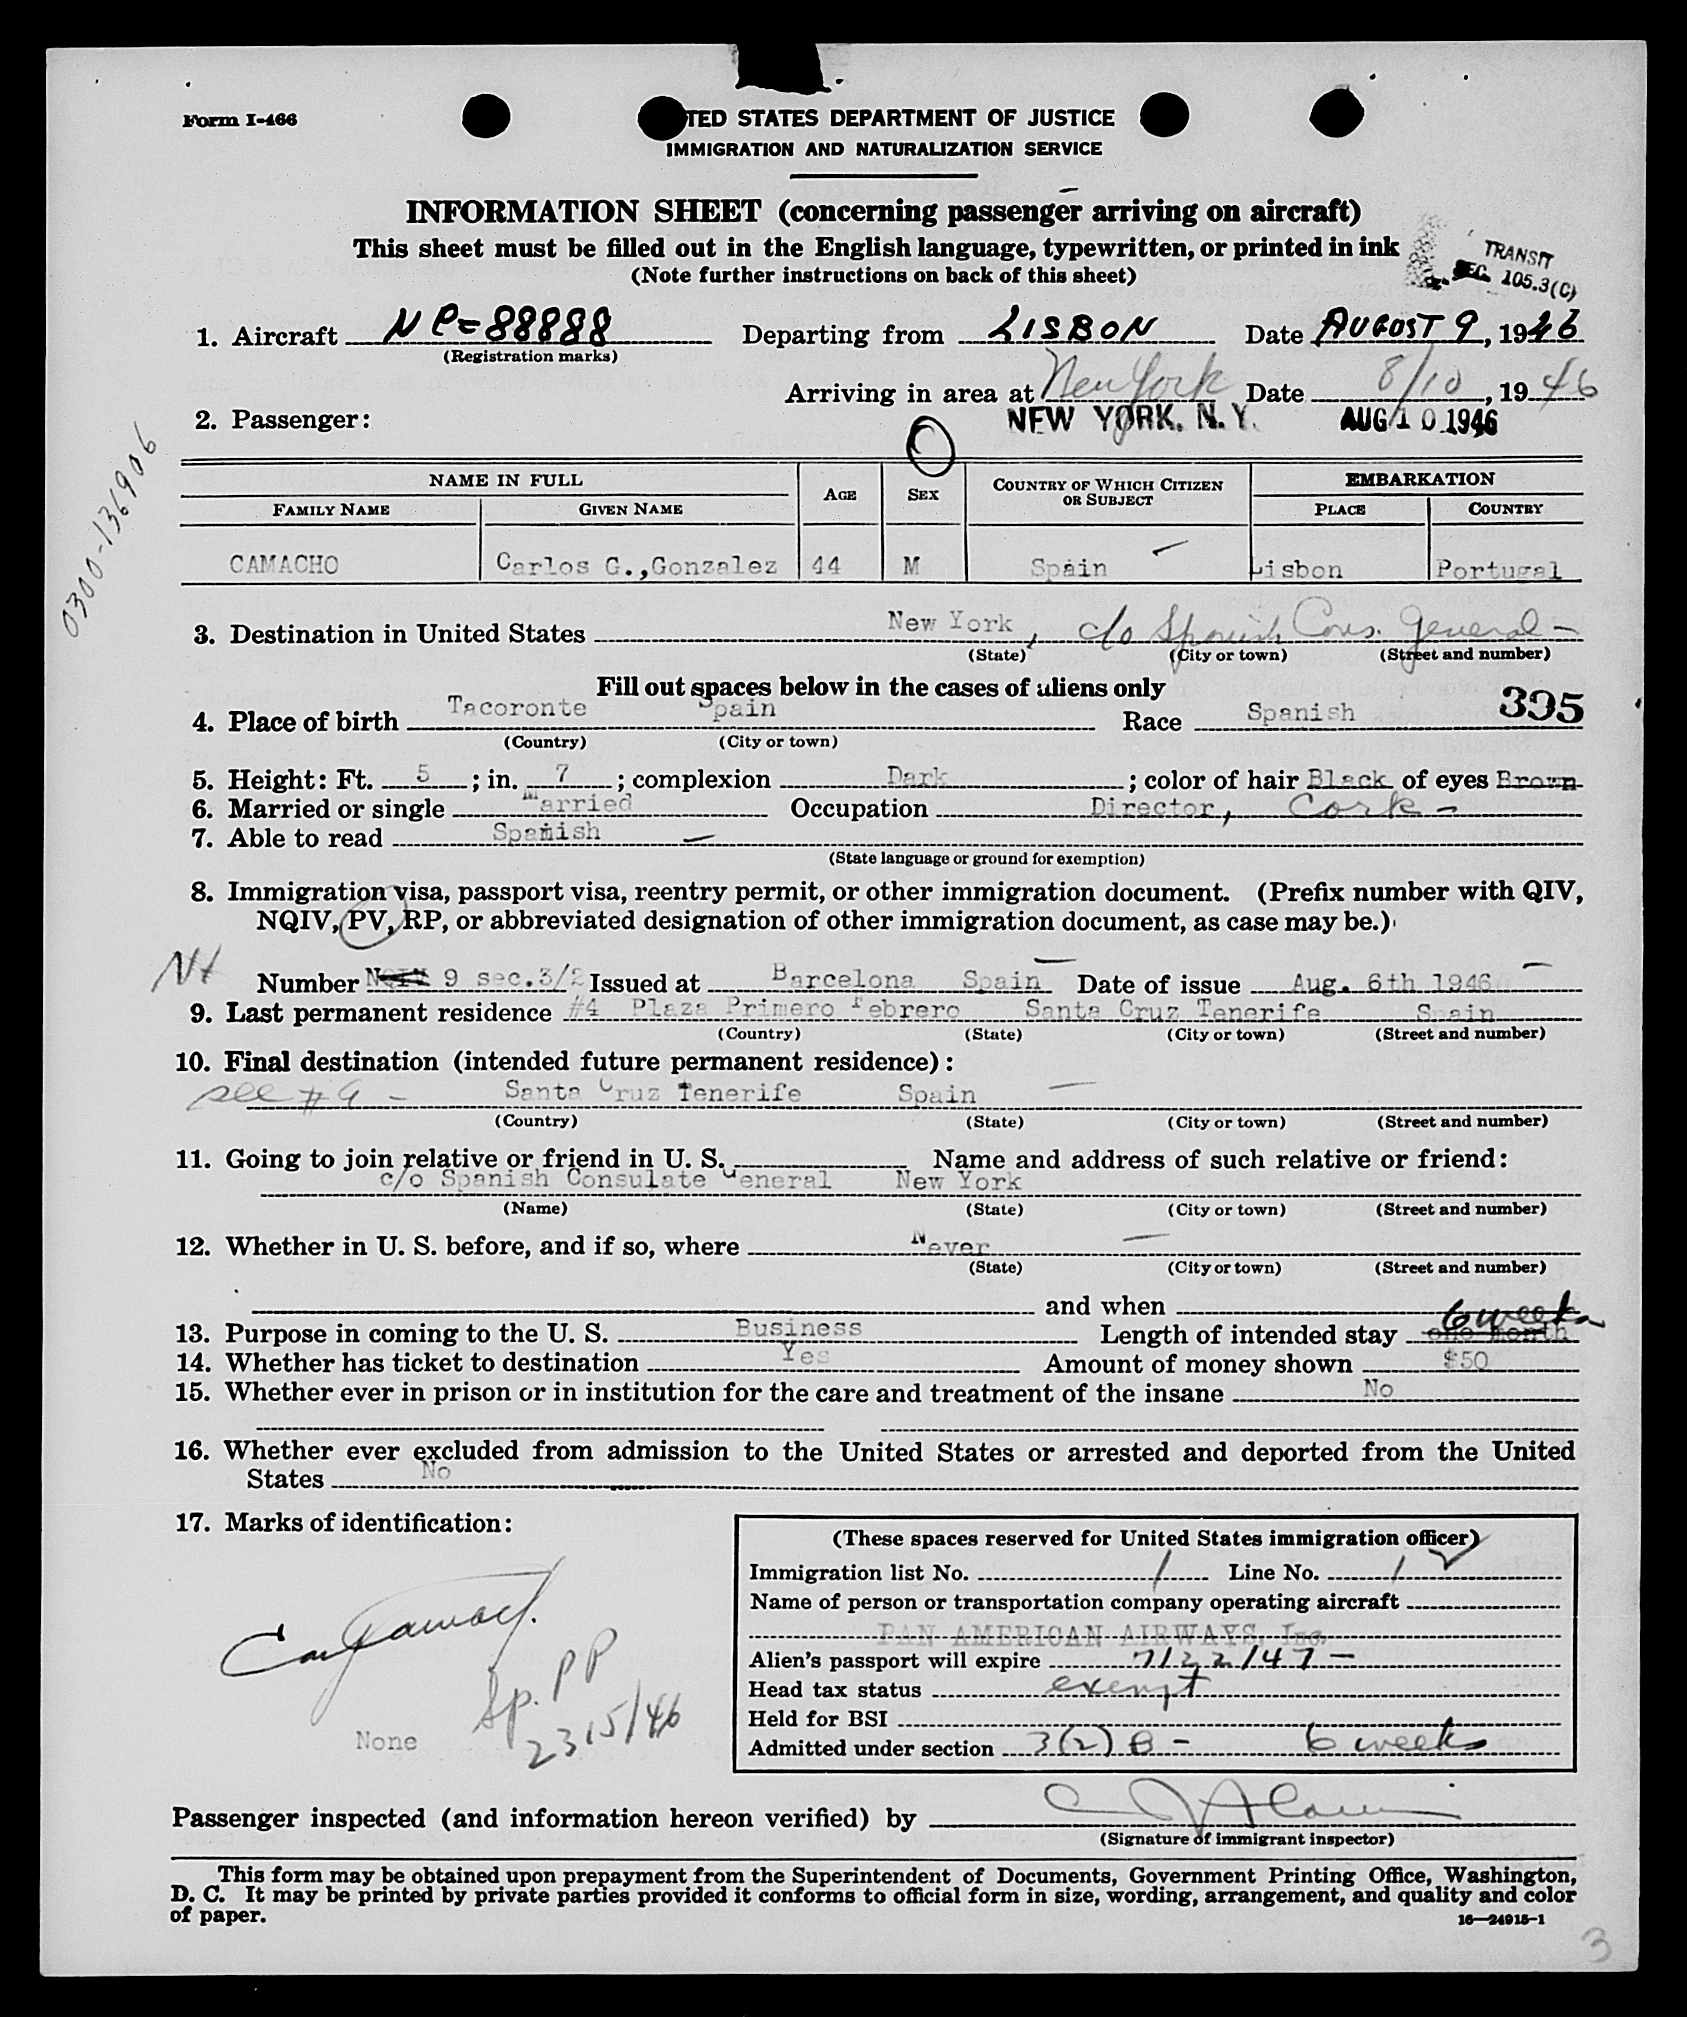 Form I-466
TED STATES DEPARTMENT OF JUSTICE
IMMIGRATION AND NATURALIZATION SERVICE
INFORMATION SHEET (concerning passenger arriving on aircraft)
This sheet must be filled out in the English language, typewritten, or printed in ink
(Note further instructions on back of this sheet)
TRANSIT
SEC. 105.3(C)
1. Aircraft NP=88888 Departing from LISBON Date AUGUST 9, 1946
(Registration marks)
Arriving in area at New York Date 8/10, 1946
2. Passenger: NEW YORK, N.Y. AUG 10 1946
0300-136906
NAME IN FULL AGE SEX COUNTRY OF WHICH CITIZEN OR SUBJECT EMBARKATION
FAMILY NAME GIVEN NAME PLACE COUNTRY
CAMACHO Carlos G.,Gonzalez 44 M Spain Lisbon Portugal
3. Destination in United States New York, c/o Spanish Cons. General -
(State) (City or town) (Street and number)
Fill out spaces below in the cases of aliens only
4. Place of birth Tacoronte Spain Race Spanish 395
(Country) (City or town)
5. Height: Ft. 5; in. 7; complexion Dark; color of hair Black of eyes Brown
6. Married or single Married Occupation Director, Cork -
7. Able to read Spanish -
(State language or ground for exemption)
8. Immigration visa, passport visa, reentry permit, or other immigration document. (Prefix number with QIV,
NQIV, PV, RP, or abbreviated designation of other immigration document, as case may be.)
Number NQIV 9 sec.3/2 Issued at Barcelona Spain Date of issue Aug. 6th 1946
9. Last permanent residence #4 Plaza Primero Febrero Santa Cruz Tenerife Spain
(Country) (State) (City or town) (Street and number)
10. Final destination (intended future permanent residence):
see # 9 - Santa Cruz Tenerife Spain
(Country) (State) (City or town) (Street and number)
11. Going to join relative or friend in U. S. Name and address of such relative or friend:
c/o Spanish Consulate General New York
(Name) (State) (City or town) (Street and number)
12. Whether in U. S. before, and if so, where Never
(State) (City or town) (Street and number)
and when
13. Purpose in coming to the U. S. Business Length of intended stay one month 6 weeks
14. Whether has ticket to destination Yes Amount of money shown $50
15. Whether ever in prison or in institution for the care and treatment of the insane No
16. Whether ever excluded from admission to the United States or arrested and deported from the United
States No
17. Marks of identification:
Sp. PP
2315/46
None
(These spaces reserved for United States immigration officer)
Immigration list No. 1 Line No. 1
Name of person or transportation company operating aircraft
PAN AMERICAN AIRWAYS, Inc.
Alien's passport will expire 7/22/47 -
Head tax status exempt
Held for BSI
Admitted under section 3(2) B - 6 weeks
Passenger inspected (and information hereon verified) by
(Signature of immigrant inspector)
This form may be obtained upon prepayment from the Superintendent of Documents, Government Printing Office, Washington,
D. C. It may be printed by private parties provided it conforms to official form in size, wording, arrangement, and quality and color
of paper.
16—24915-1
3